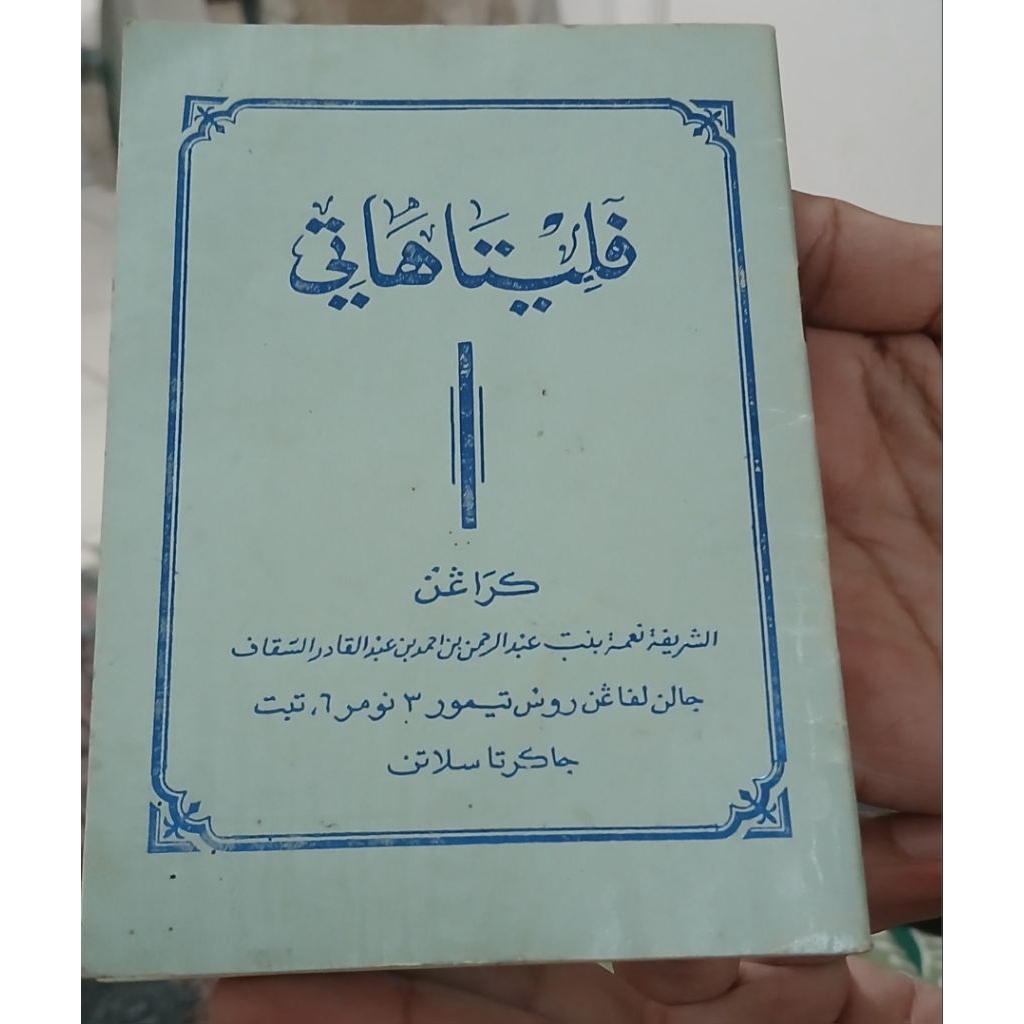 فَلِيْتَا هَاتِي
كرَاڠنْ
الشريفة نعمة بنت عبد الرحمن بن احمد بن عبد القادر السقاف
جالن لفاڠن روس تيمور ٣ نومر ٦، تبت
جاكرتا سلاتن